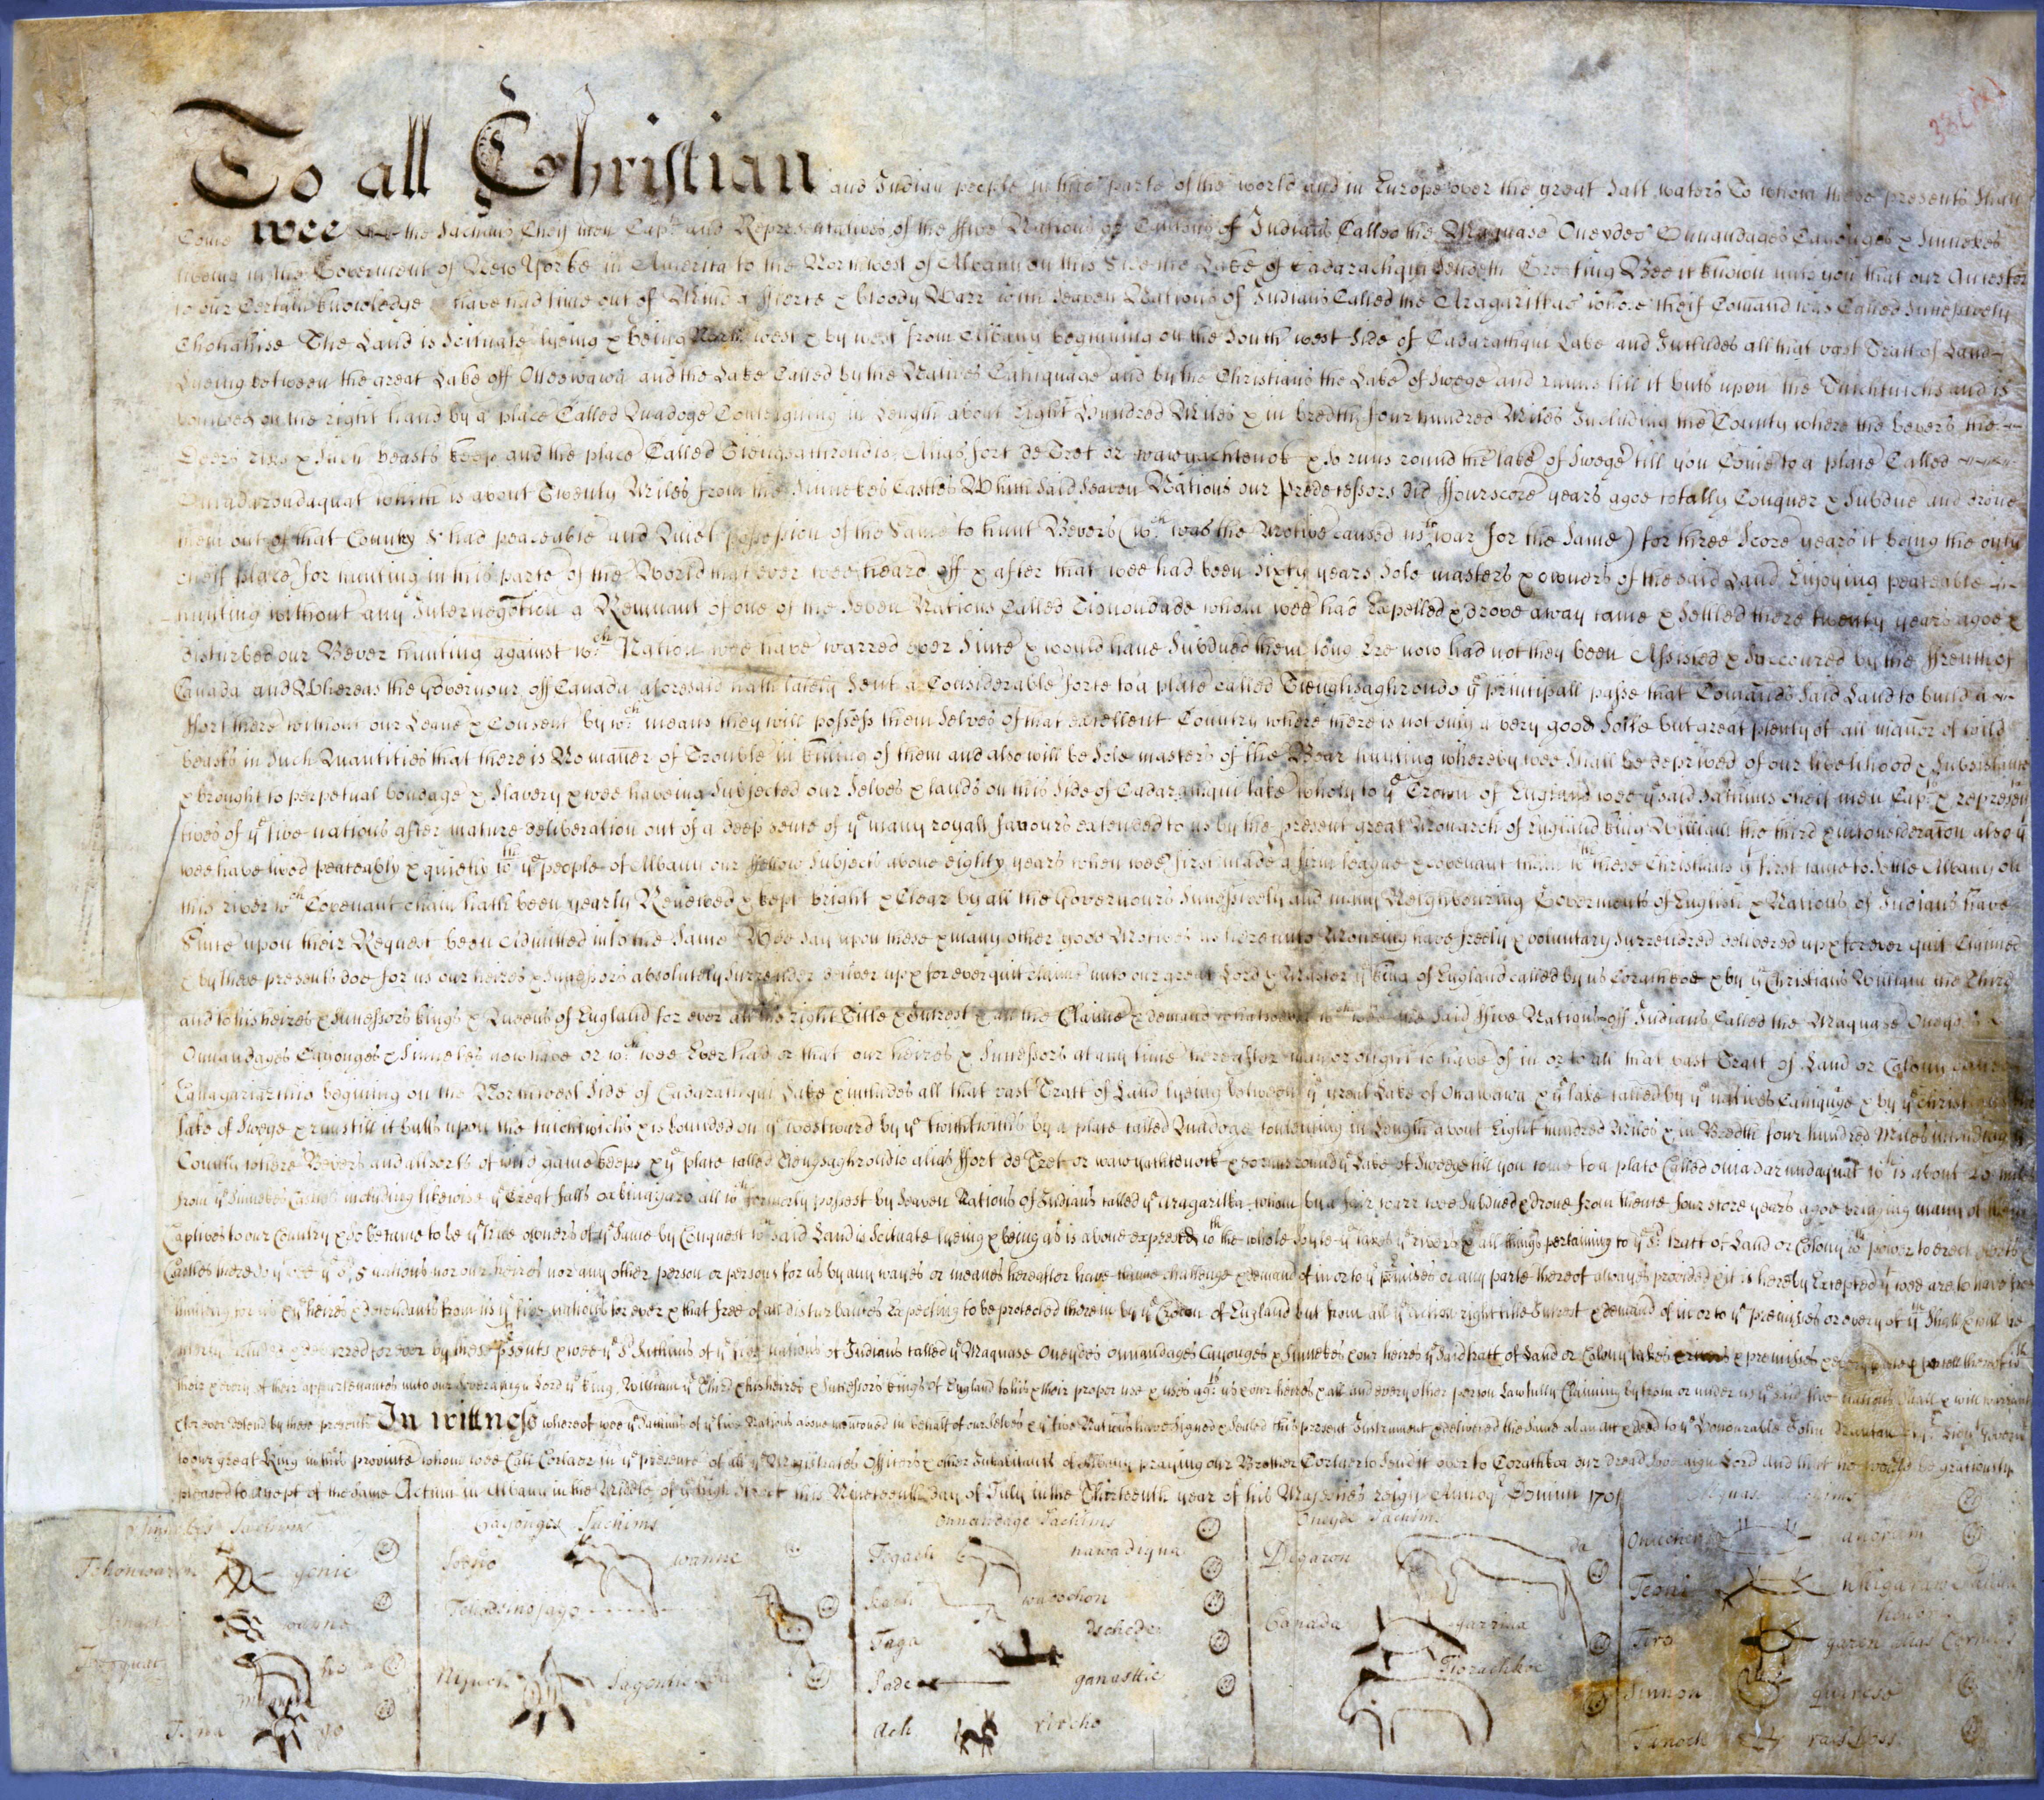 To all Christian and Indian people in this parte of the world and in Europe over the great Salt waters To whom these presents Shall
Come wee the Sachims Cheif men Capts and Representatives of the ffive Nations or Cantons of Indians Called the Maquase Oneydes Onnandages Cayouges & Sinnekes
liveing in the Goverment of New Yorke in America to the Northwest of Albany on this Side the Lake of Cadarachqui Sendeth Greeting Bee it known unto you that our Ancestors
to our Certain knowledge have had time out of Mind a fierce & bloody Warr with Seaven Nations of Indians Called the Aragaritkas whose Cheif Comand was Called Successively
Chohahise The Land is Scituate lyeing & being North west & by west from Albany beginning on the South west Side of Cadarachqui Lake and Includes all that vast Tract of Land
Lyeing between the great Lake off Ottowawa and the Lake Called by the Natives Cahiquage and by the Christians the Lake of Swege and runns till it buts upon the Twichtwichs and is
bounded on the right hand by a place Called Quadoge Conteigning in Length about Eight hundred Miles & in bredth four hundred Miles Including the Country where the bevers the
Deers Elks & Such beasts keep and the place Called Tieugsachrondio alias fort de Tret or wawyachtenok & so runs round the lake of Swege till you Come to a place Called
Oniadarondaquat which is about Twenty Miles from the Sinnekes Castles Which Said Seaven Nations our predecessors did ffourscore years agoe totally Conquer & Subdue and drove
them out of that Country & had peaceable and Quiet possession of the Same to hunt Bevers (wch was the Motive Caused us to war for the Same) for three Score years it being the only
cheif place for hunting in this parte of the World that ever wee heard off & after that wee had been Sixty years Sole masters & owners of the Said Land Enjoying peaceable
hunting without any Internegotion a Remnant of one of the Seven Nations Called Tionondade whom wee had Expelled & drove away came & Settled there twenty years agoe &
disturbed our Bever hunting against wch Nation wee have warred ever Since & would have Subdued them long Ere now had not they been Assisted & Succoured by the ffrench of
Canada and Whereas the Governour off Canada aforesaid hath lately Sent a Considerable force to a place called Tieughsaghrondio ye principall passe that Comands Said Land to build a
ffort there without our Leave & Consent by wch means they will possess themselves of that excellent Country where there is not only a very good Soile but great plenty of all maner of wild
beasts in Such Quantities that there is No maner of Trouble in killing of them and also will be Sole masters of the Boar hunting whereby wee Shall be deprived of our livelihood & Subsistance
& brought to perpetual bondage & Slavery & wee haveing Subjected our Selves & lands on this Side of Cadarachqui lake wholy to ye Crown of England wee ye said Sachims cheif men Capts & representa
tives of ye five nations after mature deliberation out of a deep sence of ye many royall favours extended to us by the present great Monarch of England King William the third & in consideration also yt
wee have lived peaceably & quietly wth ye people of Albany our ffellow Subjects above eighty years when wee first made a firm league & covenant chain wth these Christians yt first came to Settle Albany on
this river wch Covenant chain hath been yearly Renewed & kept bright & Clear by all the Governours Successively and many Neighbouring Goverments of English & Nations of Indians have
Since upon their Request been admitted into the Same Wee Say upon these & many other good Motives us hereunto Moveing have freely & voluntary Surrendred delivered up & forever quit Claimed
& by these presents doe for us our heires & Successors absolutely Surrender deliver up & for ever quit claime unto our great Lord & Master ye King of England called by us Corachkoe & by ye Christians William the Third
and to his heires & Successors Kings & Queens of England for ever all the right Title & Intrest & all the Claime & demand whatsoever wch wee the Said ffive Nations off Indians Called the Maquase Oneydes
Onnandages Cayouges & Sinnekes now have or wch wee Ever had or that our heires & Successors at any time hereafter may or ought to have of in or to all that vast Tract of Land or Colony
Canagariarchio begining on the Northwest Side of Cadarachqui Lake & includes all that vast Tract of Land lyeing between ye great Lake of Ottawawa & ye lake called by ye natives Cahiquage & by ye Christians the
lake of Swege & runs till it butts upon the Twichtwichs & is bounded on ye westward by ye Twichtwichs by a place called Quadoge conteining in Length about Eight hundred Miles & in Bredth four hundred Miles including ye
Country where Bevers and all sorts of wild game keeps & ye place called Tieugsaghrondio alias ffort de Tret or wawyachtenock & so runs round ye Lake of Swege till you come to a place Called oniadarundaquat wch is about 20 miles
from ye Sinnekes Castles including likewise ye Great falls oakinagaro all wch formerly possest by Seaven Nations of Indians called ye aragaritka whom by a fair warr wee Subdued & drove from thence four score years agoe bringing many of them
Captives to our Country & Soe became to be ye true owners of ye Same by Conquest wch said Land is Scituate lyeing & being as is above expressed wth the whole Soyle ye lakes ye rivers & all things pertaining to ye sd tract of Land or Colony wth power to erect fforts &
Castles there soe yt wee ye sd 5 nations nor our heires nor any other person or persons for us by any wayes or meanes hereafter have claime challenge & demand of in or to ye premises or any parte thereof alwayes provided & it is hereby Excepted yt wee are to have free
hunting for us & ye heires & descendants from us ye five nations for ever & that free of all disturbances expecting to be protected therein by ye Crown of England but from all ye action right title Intrest & demand of in or to ye premisses or every of ym Shall & will be
uterly Excluded & debarred for ever by these psents & wee ye sd Sachims of ye five nations of Indians called ye Maquase Oneydes onnandages Cayouges & Sinnekes & our heires ye Said tract of Land or Colony lakes & rivers & premisses & every parte & parcell thereof wth
their & every of their appurtenances unto our Soveraign Lord ye King William ye Third & his heires & Successors Kings of England to his & their proper use & uses agt us & our heires & all and every other person Lawfully Claiming by from or under us ye said five nations Shall & will warrant
& for ever defend by these presents In wittness whereof wee ye Sachims of ye five Nations above mentioned in behalf of our Selves & ye five Nations have Signed & Sealed this present Instrument & delivered the Same as an act & deed to ye Honourable John Nanfan Esqr Lieut Governr
to our great King in this province whom wee Call Corlaer in ye presence of all ye Magistrates Officers & other Inhabitants of Albany praying our Brother Corlaer to Send it over to Corachkoe our dread Soveraign Lord and that he would be graciously
pleased to accept of the Same Actum in Albany in the Middle of ye high Street this Nineteenth day of July in the Thirteenth year of his Majesties reign Annoq Domini 1701
Sinnekes Sachims
Cayouges Sachims
Onnandage Sachims
Oneyde Sachims
Maquase Sachims
Tehonwaren genie
Sonjos wanne
Tehodesinojago
Nijuch Sagentis
Tegach nawadiqua
Kach wadochon
Taga dschede
Sade ganasttie
Ach rircho
Degaron da
Canada garriaa
Tiorachkoe
Onucheri anorum
Teoni
Tiro garen alias Cornelis
Sinnon quirese
Tanoch rachhoss